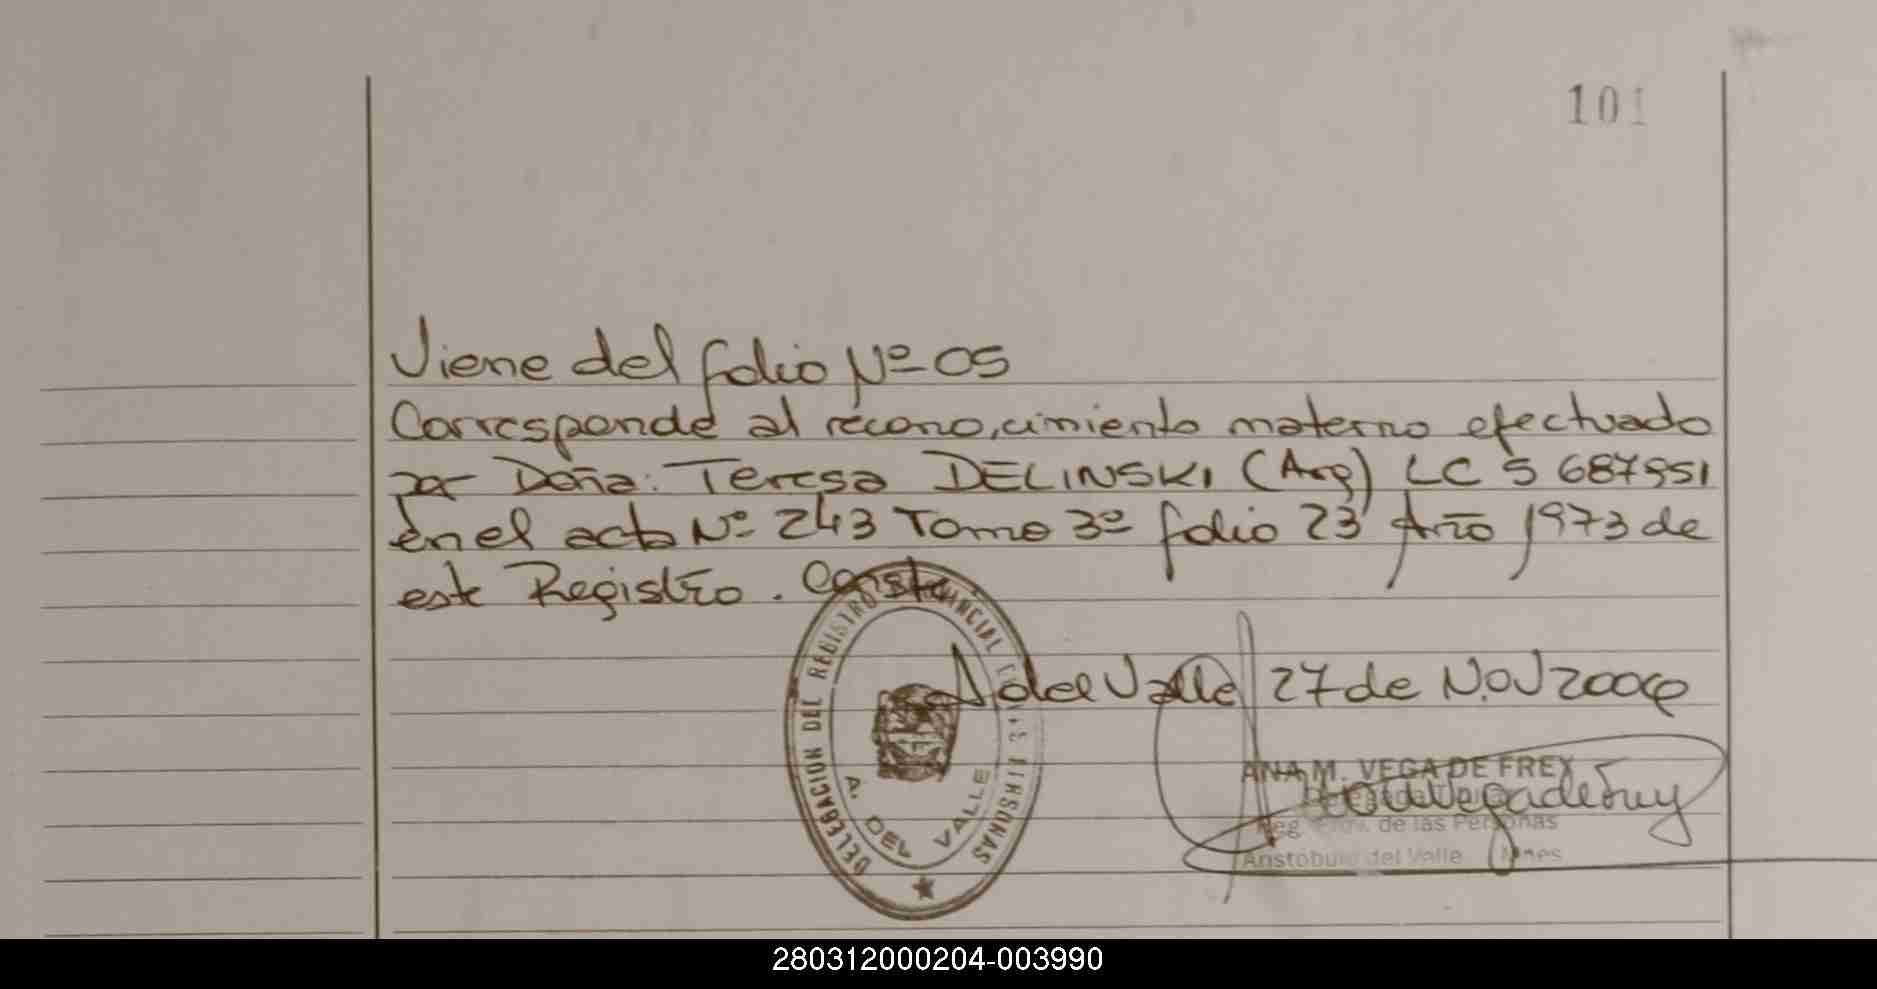 101
Viene del folio Nº 05
Corresponde al reconocimiento materno efectuado
por Doña: Teresa DELINSKI (Arg) LC 5 687951
en el acta Nº 243 Tomo 3º folio 23 Año 1973 de
este Registro. Conste
A del Valle 27 de NOV 2006
DELEGACION DEL REGISTRO PROVINCIAL PERSONAS
A. DEL VALLE
ANA M. VEGA DE FREY
Reg. Prov. de las Personas
Aristóbulo del Valle
280312000204-003990